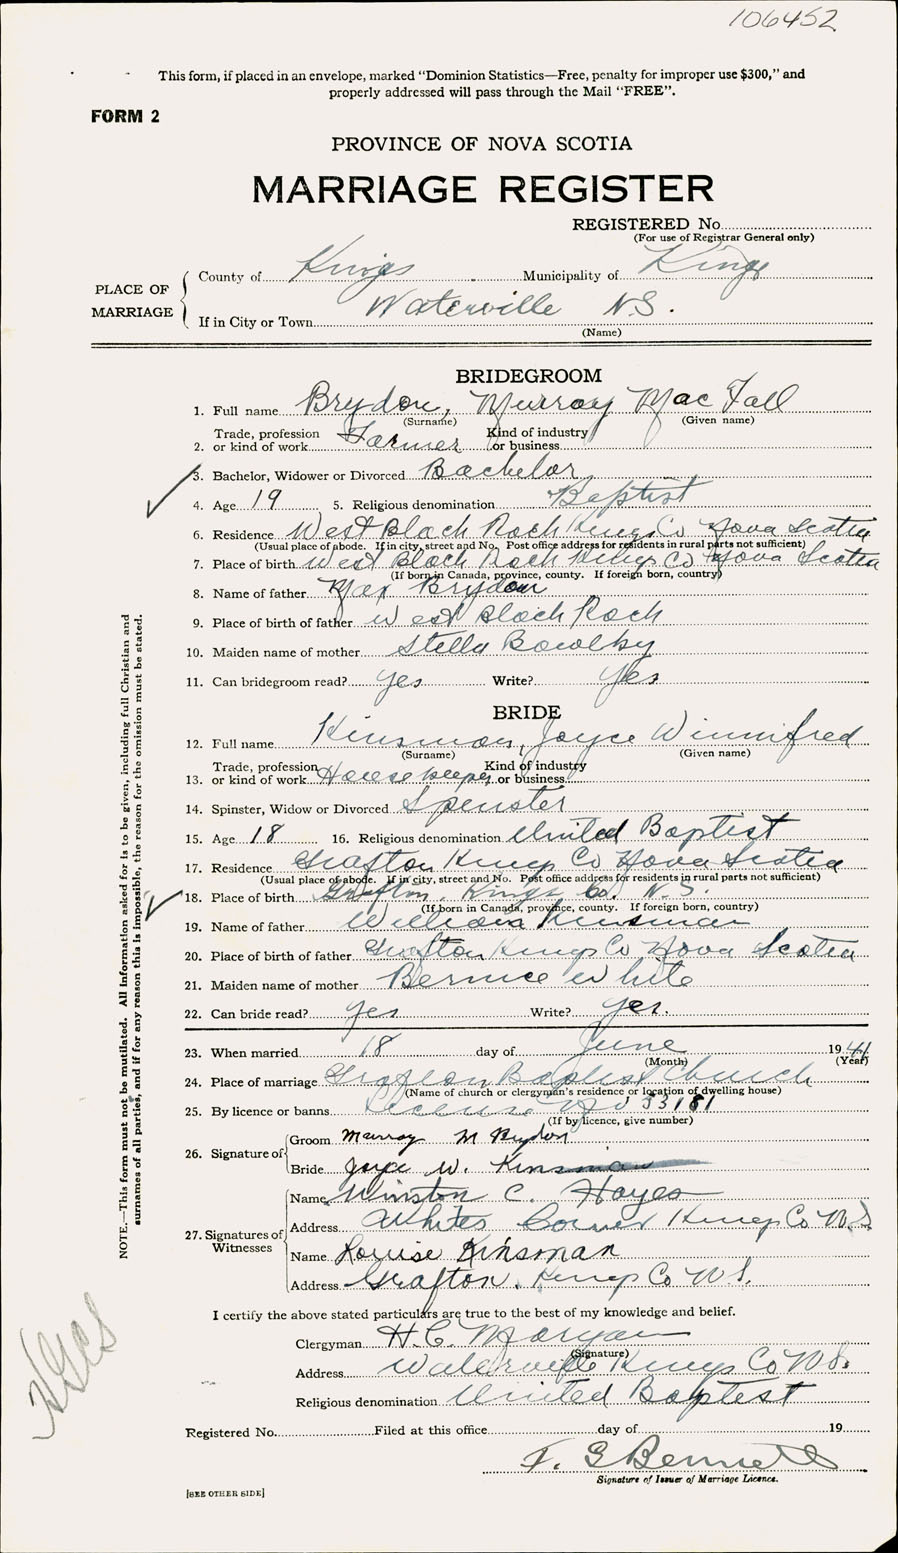 106452
This form, if placed in an envelope, marked "Dominion Statistics—Free, penalty for improper use $300," and
properly addressed will pass through the Mail "FREE".
FORM 2
PROVINCE OF NOVA SCOTIA
MARRIAGE REGISTER
REGISTERED No.
(For use of Registrar General only)
PLACE OF MARRIAGE
County of Kings Municipality of Kings
If in City or Town Waterville N.S.
(Name)
BRIDEGROOM
1. Full name Brydon, Murray Mac Fall
(Surname) (Given name)
2. Trade, profession or kind of work Farmer Kind of industry or business
3. Bachelor, Widower or Divorced Bachelor
4. Age 19 5. Religious denomination Baptist
6. Residence West Black Rock Kings Co Nova Scotia
(Usual place of abode. If in city, street and No. Post office address for residents in rural parts not sufficient)
7. Place of birth West Black Rock Kings Co Nova Scotia
(If born in Canada, province, county. If foreign born, country)
8. Name of father Max Brydon
9. Place of birth of father West Black Rock
10. Maiden name of mother Stella Bowlby
11. Can bridegroom read? yes Write? yes
BRIDE
12. Full name Kinsman, Joyce Winnifred
(Surname) (Given name)
13. Trade, profession or kind of work Housekeeper Kind of industry or business
14. Spinster, Widow or Divorced Spinster
15. Age 18 16. Religious denomination United Baptist
17. Residence Grafton Kings Co Nova Scotia
(Usual place of abode. If in city, street and No. Post office address for residents in rural parts not sufficient)
18. Place of birth Grafton, Kings Co. N.S.
(If born in Canada, province, county. If foreign born, country)
19. Name of father William Kinsman
20. Place of birth of father Grafton Kings Co Nova Scotia
21. Maiden name of mother Bernice White
22. Can bride read? yes Write? yes.
23. When married 18 day of June 1941
(Month) (Year)
24. Place of marriage Grafton Baptist Church
(Name of church or clergyman's residence or location of dwelling house)
25. By licence or banns License No 33181
(If by licence, give number)
26. Signature of Groom Murray M Brydon
Bride Joyce W. Kinsman
27. Signatures of Witnesses
Name Winston C. Hayes
Address Whites Corner Kings Co N.S.
Name Louise Kinsman
Address Grafton, Kings Co N S.
I certify the above stated particulars are true to the best of my knowledge and belief.
Clergyman H.C. Morgan
(Signature)
Address Waterville Kings Co N S.
Religious denomination United Baptist
Registered No. Filed at this office day of 19
F. G Bennett
Signature of Issuer of Marriage Licence.
[SEE OTHER SIDE]
NOTE.—This form must not be mutilated. All Information asked for is to be given, including full Christian and
surnames of all parties, and if for any reason this is impossible, the reason for the omission must be stated.